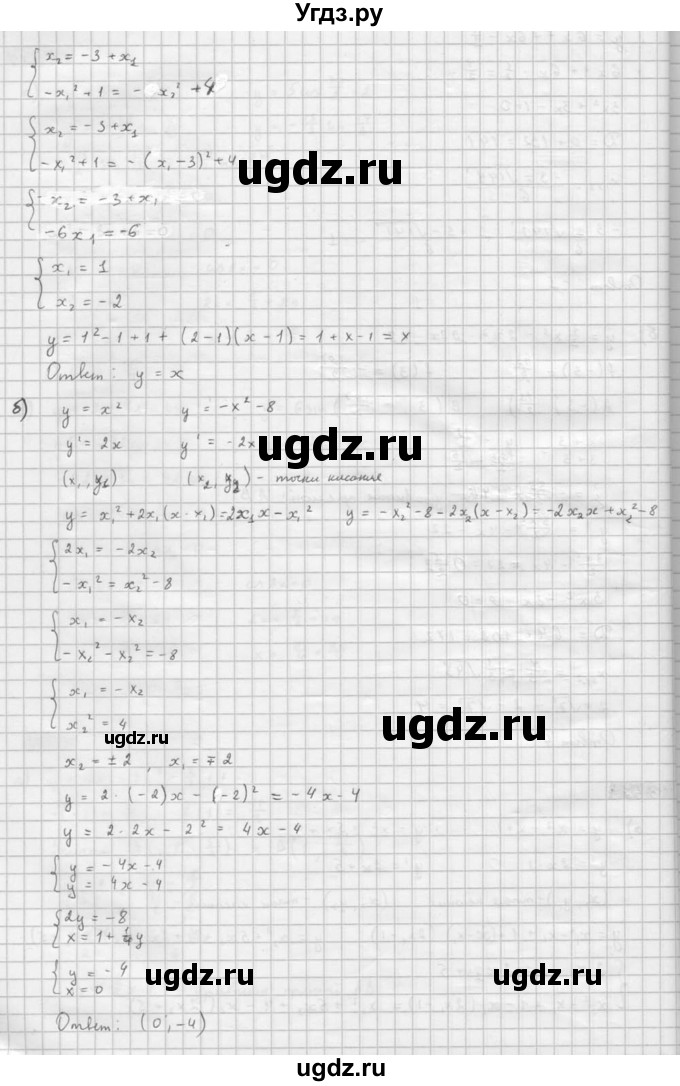 Угдз.ру
x₂ = -3 + x₁
-x₁² + 1 = - x₂² + 4
x₂ = -3 + x₁
-x₁² + 1 = - (x₁ - 3)² + 4
ugdz.ru
x₂ = -3 + x₁
-6x₁ = -6
x₁ = 1
x₂ = -2
y = 1² - 1 + 1 + (2 - 1)(x - 1) = 1 + x - 1 = x
Ответ: y = x
б) y = x² y = -x² - 8
y' = 2x y' = -2x
ugdz.ru
(x₁, y₁) (x₂, y₂) - точки касания
y = x₁² + 2x₁(x - x₁) = 2x₁x - x₁² y = -x₂² - 8 - 2x₂(x - x₂) = -2x₂x + x₂² - 8
2x₁ = -2x₂
-x₁² = x₂² - 8
x₁ = -x₂
-x₂² - x₂² = -8
x₁ = -x₂
x₂² = 4
ugdz.ru
ugdz.ru
x₂ = ±2, x₁ = ∓2
y = 2·(-2)x - (-2)² = -4x - 4
y = 2·2x - 2² = 4x - 4
y = -4x - 4
y = 4x - 4
2y = -8
x = 1 + ¼y
y = -4
x = 0
ugdz.ru
ugdz.ru
Ответ: (0; -4)
ugdz.ru